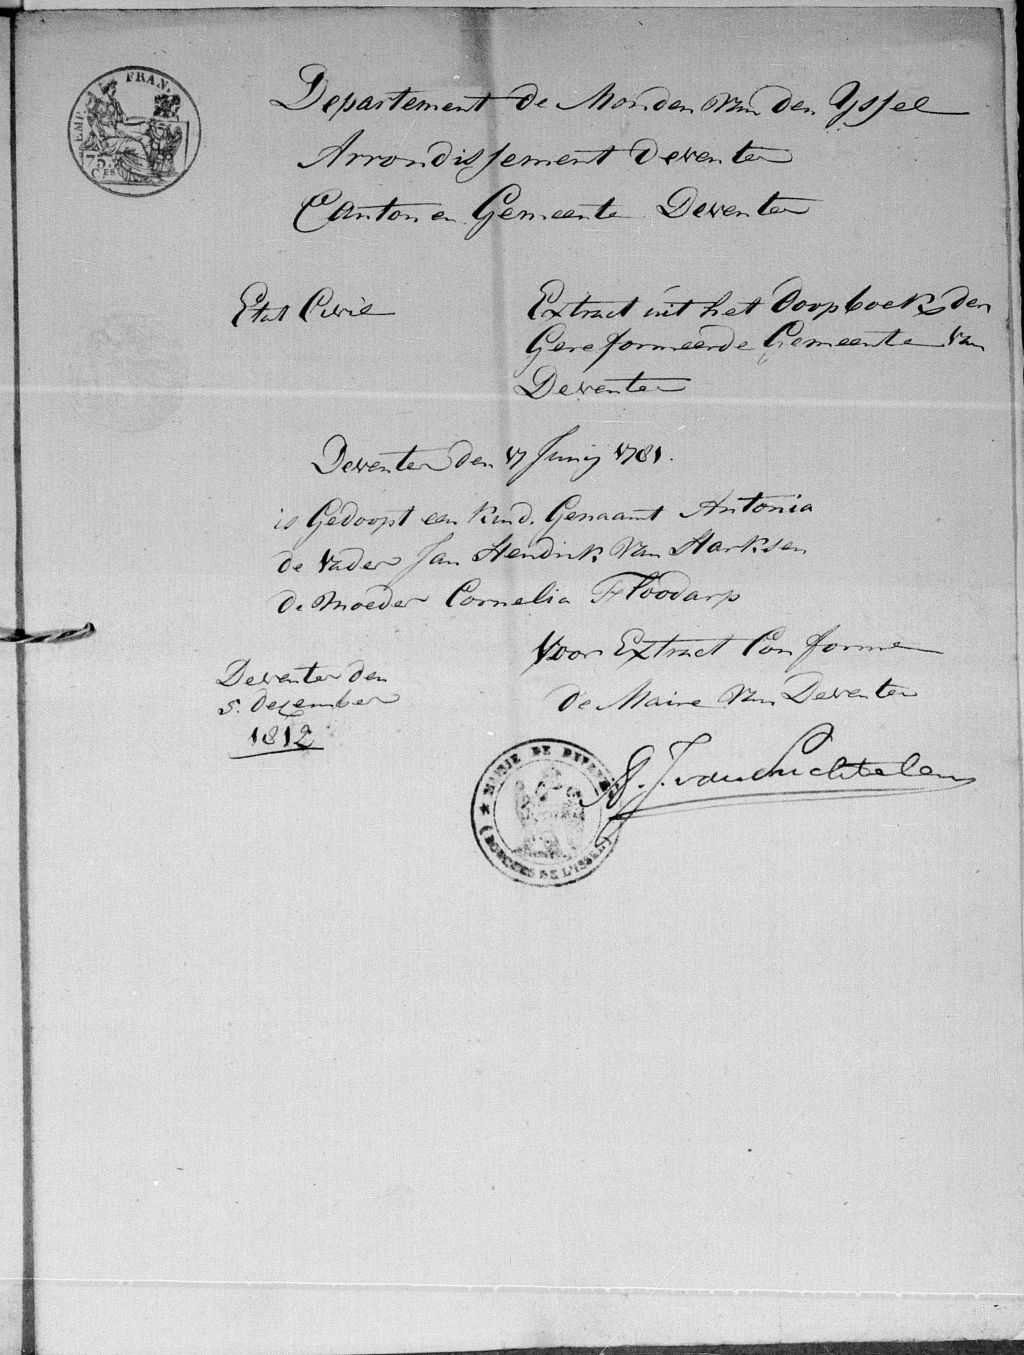 EMP. FRAN.
75.
CES
Departement de Monden van den Yssel
Arrondissement Deventer
Canton en Gemeente Deventer
Etat Civil
Extract uit het Doopboek der
Gereformeerde Gemeente van
Deventer
Deventer den 17 Junij 1781.
is Gedoopt een kind. Genaamt Antonia
de vader Jan Hendrik van Harksen
de moeder Cornelia Floodarp
Voor Extract Conforme
de Maire van Deventer
Deventer den
5. December
1812
MAIRIE DE DEVENTER
(BOUCHES DE L'ISSEL)